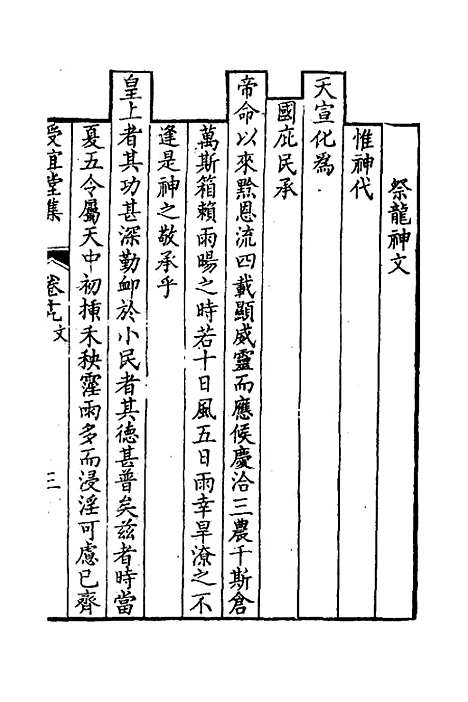 祭龍神文
惟神代
天宣化為
國庇民承
帝命以來黔恩流四載顯威靈而應候慶洽三農千斯倉
萬斯箱賴雨暘之時若十日風五日雨幸旱潦之不
逢是神之敬承乎
皇上者其功甚深勤卹於小民者其德甚普矣兹者時當
夏五令屬天中初揷禾秧霪雨多而浸淫可慮已齊
受宜堂集 卷 文 三